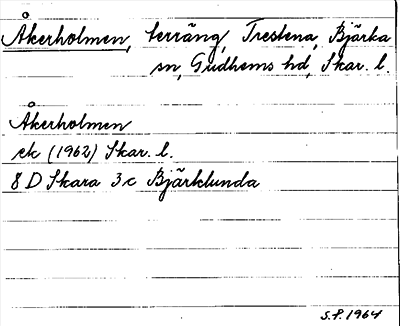 Åkerholmen, terräng, Trestena, Bjärka
sn, Gudhems hd, Skar. l.
Åkerholmen
ek (1962) Skar. l.
8 D Skara 3 c Bjärklunda
S.P. 1964